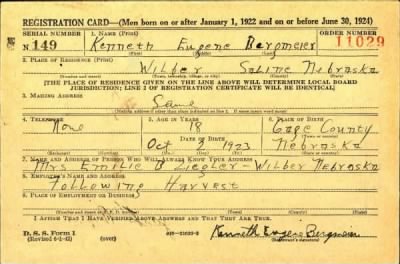 REGISTRATION CARD—(Men born on or after January 1, 1922 and on or before June 30, 1924)
SERIAL NUMBER
1. NAME (Print)
ORDER NUMBER
N 149
Kenneth Eugene Bergmeier
11029
(First) (Middle) (Last)
2. PLACE OF RESIDENCE (Print)
Wilber Saline Nebraska
(Number and street) (Town, township, village, or city) (County) (State)
[THE PLACE OF RESIDENCE GIVEN ON THE LINE ABOVE WILL DETERMINE LOCAL BOARD
JURISDICTION; LINE 2 OF REGISTRATION CERTIFICATE WILL BE IDENTICAL]
3. MAILING ADDRESS
Same
[Mailing address if other than place indicated on line 2. If same insert word same]
4. TELEPHONE
5. AGE IN YEARS
6. PLACE OF BIRTH
None
18
Gage County
DATE OF BIRTH
(Town or county)
Oct 2 1923
Nebraska
(Mo.) (Day) (Yr.)
(State or country)
7. NAME AND ADDRESS OF PERSON WHO WILL ALWAYS KNOW YOUR ADDRESS
Mrs Emilie B Ziegler - Wilber Nebraska
8. EMPLOYER'S NAME AND ADDRESS
Following Harvest
9. PLACE OF EMPLOYMENT OR BUSINESS
I AFFIRM THAT I HAVE VERIFIED ABOVE ANSWERS AND THAT THEY ARE TRUE.
D. S. S. Form 1
(Revised 6-9-42)
(over)
Kenneth Eugene Bergmeier
(Registrant's signature)